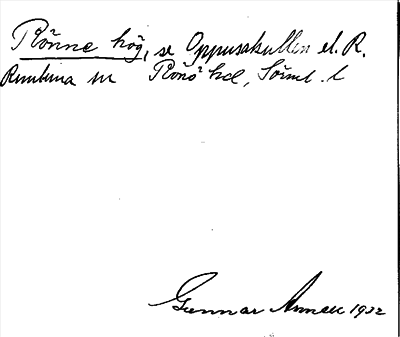 Rönne hög, se Oppusakullen el. R.
Runtuna sn Rönö hd, Sörml. l
Gunnar Annell 1932